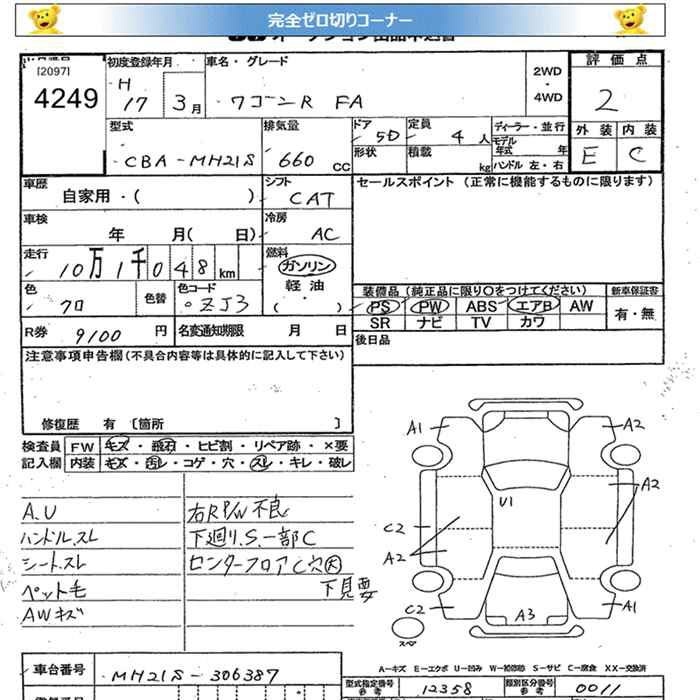 完全ゼロ切りコーナー
オークション出品申込書
[2097]
4249
初度登録年月
H 17 3月
車名・グレード
ワゴンR FA
2WD・4WD
評価点
2
型式
CBA-MH21S
排気量
660 CC
ドア
5D
形状
定員
4人
積載
kg
ディーラー・並行
モデル年式 年
ハンドル 左・右
外装 内装
E C
車歴
自家用・( )
シフト
CAT
セールスポイント (正常に機能するものに限ります)
車検
年 月( 日)
冷房
AC
走行
10万1千048km
燃料
ガソリン
軽油
( )
色
クロ
色替
色コード
ZJ3
装備品(純正品に限り○をつけてください)
新車保証書
PS PW ABS エアB AW
SR ナビ TV カワ
有・無
R券
9100 円
名変通知期限 月 日
後日品
注意事項申告欄(不具合内容等は具体的に記入して下さい)
修復歴 有 〔箇所 〕
検査員 FW キズ・飛石・ヒビ割・リペア跡・×要
記入欄 内装 キズ・汚レ・コゲ・穴・スレ・キレ・破レ
A.U
ハンドル.スレ
シート.スレ
ペット毛
AWキズ
右RP/W不良
下廻り.S.一部C
センターフロアC穴大
下見要
A1 A2
A2
U1
C2
A2
C2 A3 A1
スペア
A-キズ E-エクボ U-凹み W-補修跡 S-サビ C-腐食 XX-交換済
車台番号
MH21S-306387
型式指定番号
参考
12358
類別区分番号
参考
0011